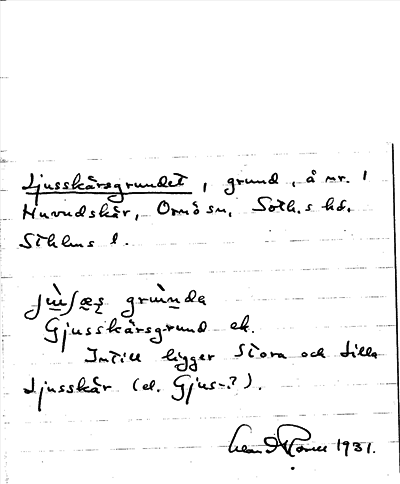 Ljusskärsgrundet, grund, å nr. 1
Huvudskär, Ornö sn, Soth.s hd.
Sthlms l.
Gjusskärsgrund ek.
Intill ligger Stora och Lilla
Ljusskär (el. Gjus-?).
1931.